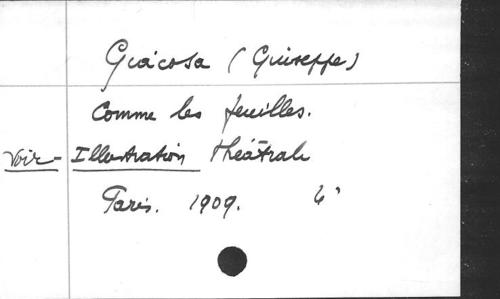 Giacosa (Giuseppe)
Comme les feuilles.
Voir - Illustration théâtrale
Paris. 1909. 4°